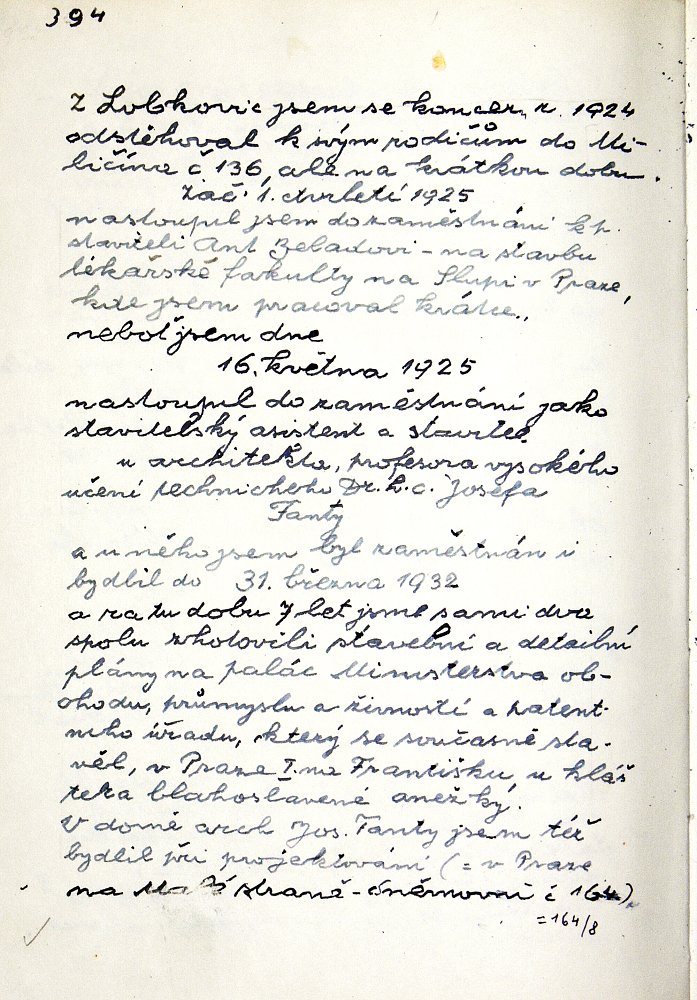 394
Z Lobkovic jsem se koncem r. 1924
odstěhoval k svým rodičům do Mi-
ličína č. 136, ale na krátkou dobu.
Zač. 1. čtvrletí 1925
nastoupil jsem do zaměstnání k p.
staviteli Ant. Beladovi - na stavbu
lékařské fakulty na Slupi v Praze,
kde jsem pracoval krátce,
neboť jsem dne
16. května 1925
nastoupil do zaměstnání jako
stavitelský asistent a stavitel
u architekta, profesora vysokého
učení technického Dr. h. c. Josefa
Fanty
a u něho jsem byl zaměstnán i
bydlil do 31. března 1932
a za tu dobu 7 let jsme sami dva
spolu zhotovili stavební a detailní
plány na palác Ministerstva ob-
chodu, průmyslu a živností a patent-
ního úřadu, který se současně sta-
věl, v Praze I. na Františku u kláš
tera blahoslavené anežky.
V domě arch Jos. Fanty jsem též
bydlil při projektování (= v Praze
na Malé straně - Sněmovní č 164)
=164/8